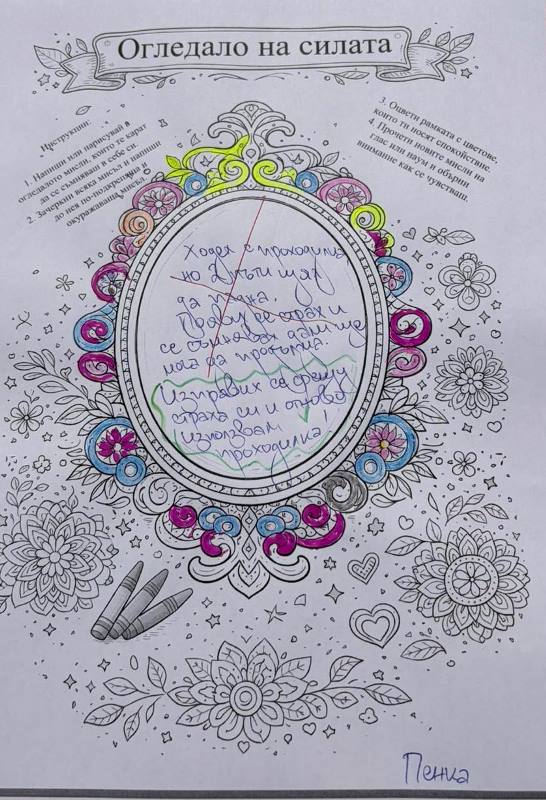 Огледало на силата
Инструкции:
1. Напиши или нарисувай в
огледалото мисли, които те карат
да се съмняваш в себе си.
2. Зачеркни всяка мисъл и напиши
до нея по-подкрепяща и
окуражаваща мисъл.
3. Оцвети рамката с цветове,
които ти носят спокойствие.
4. Прочети новите мисли на
глас или наум и обърни
внимание как се чувстваш.
Ходя с проходилка
но 2 пъти щях
да падна.
страх и
се съмнявах дали ще
мога да продължа.
Изправих се срещу
страха си и отново
използвам
проходилка!
Пенка